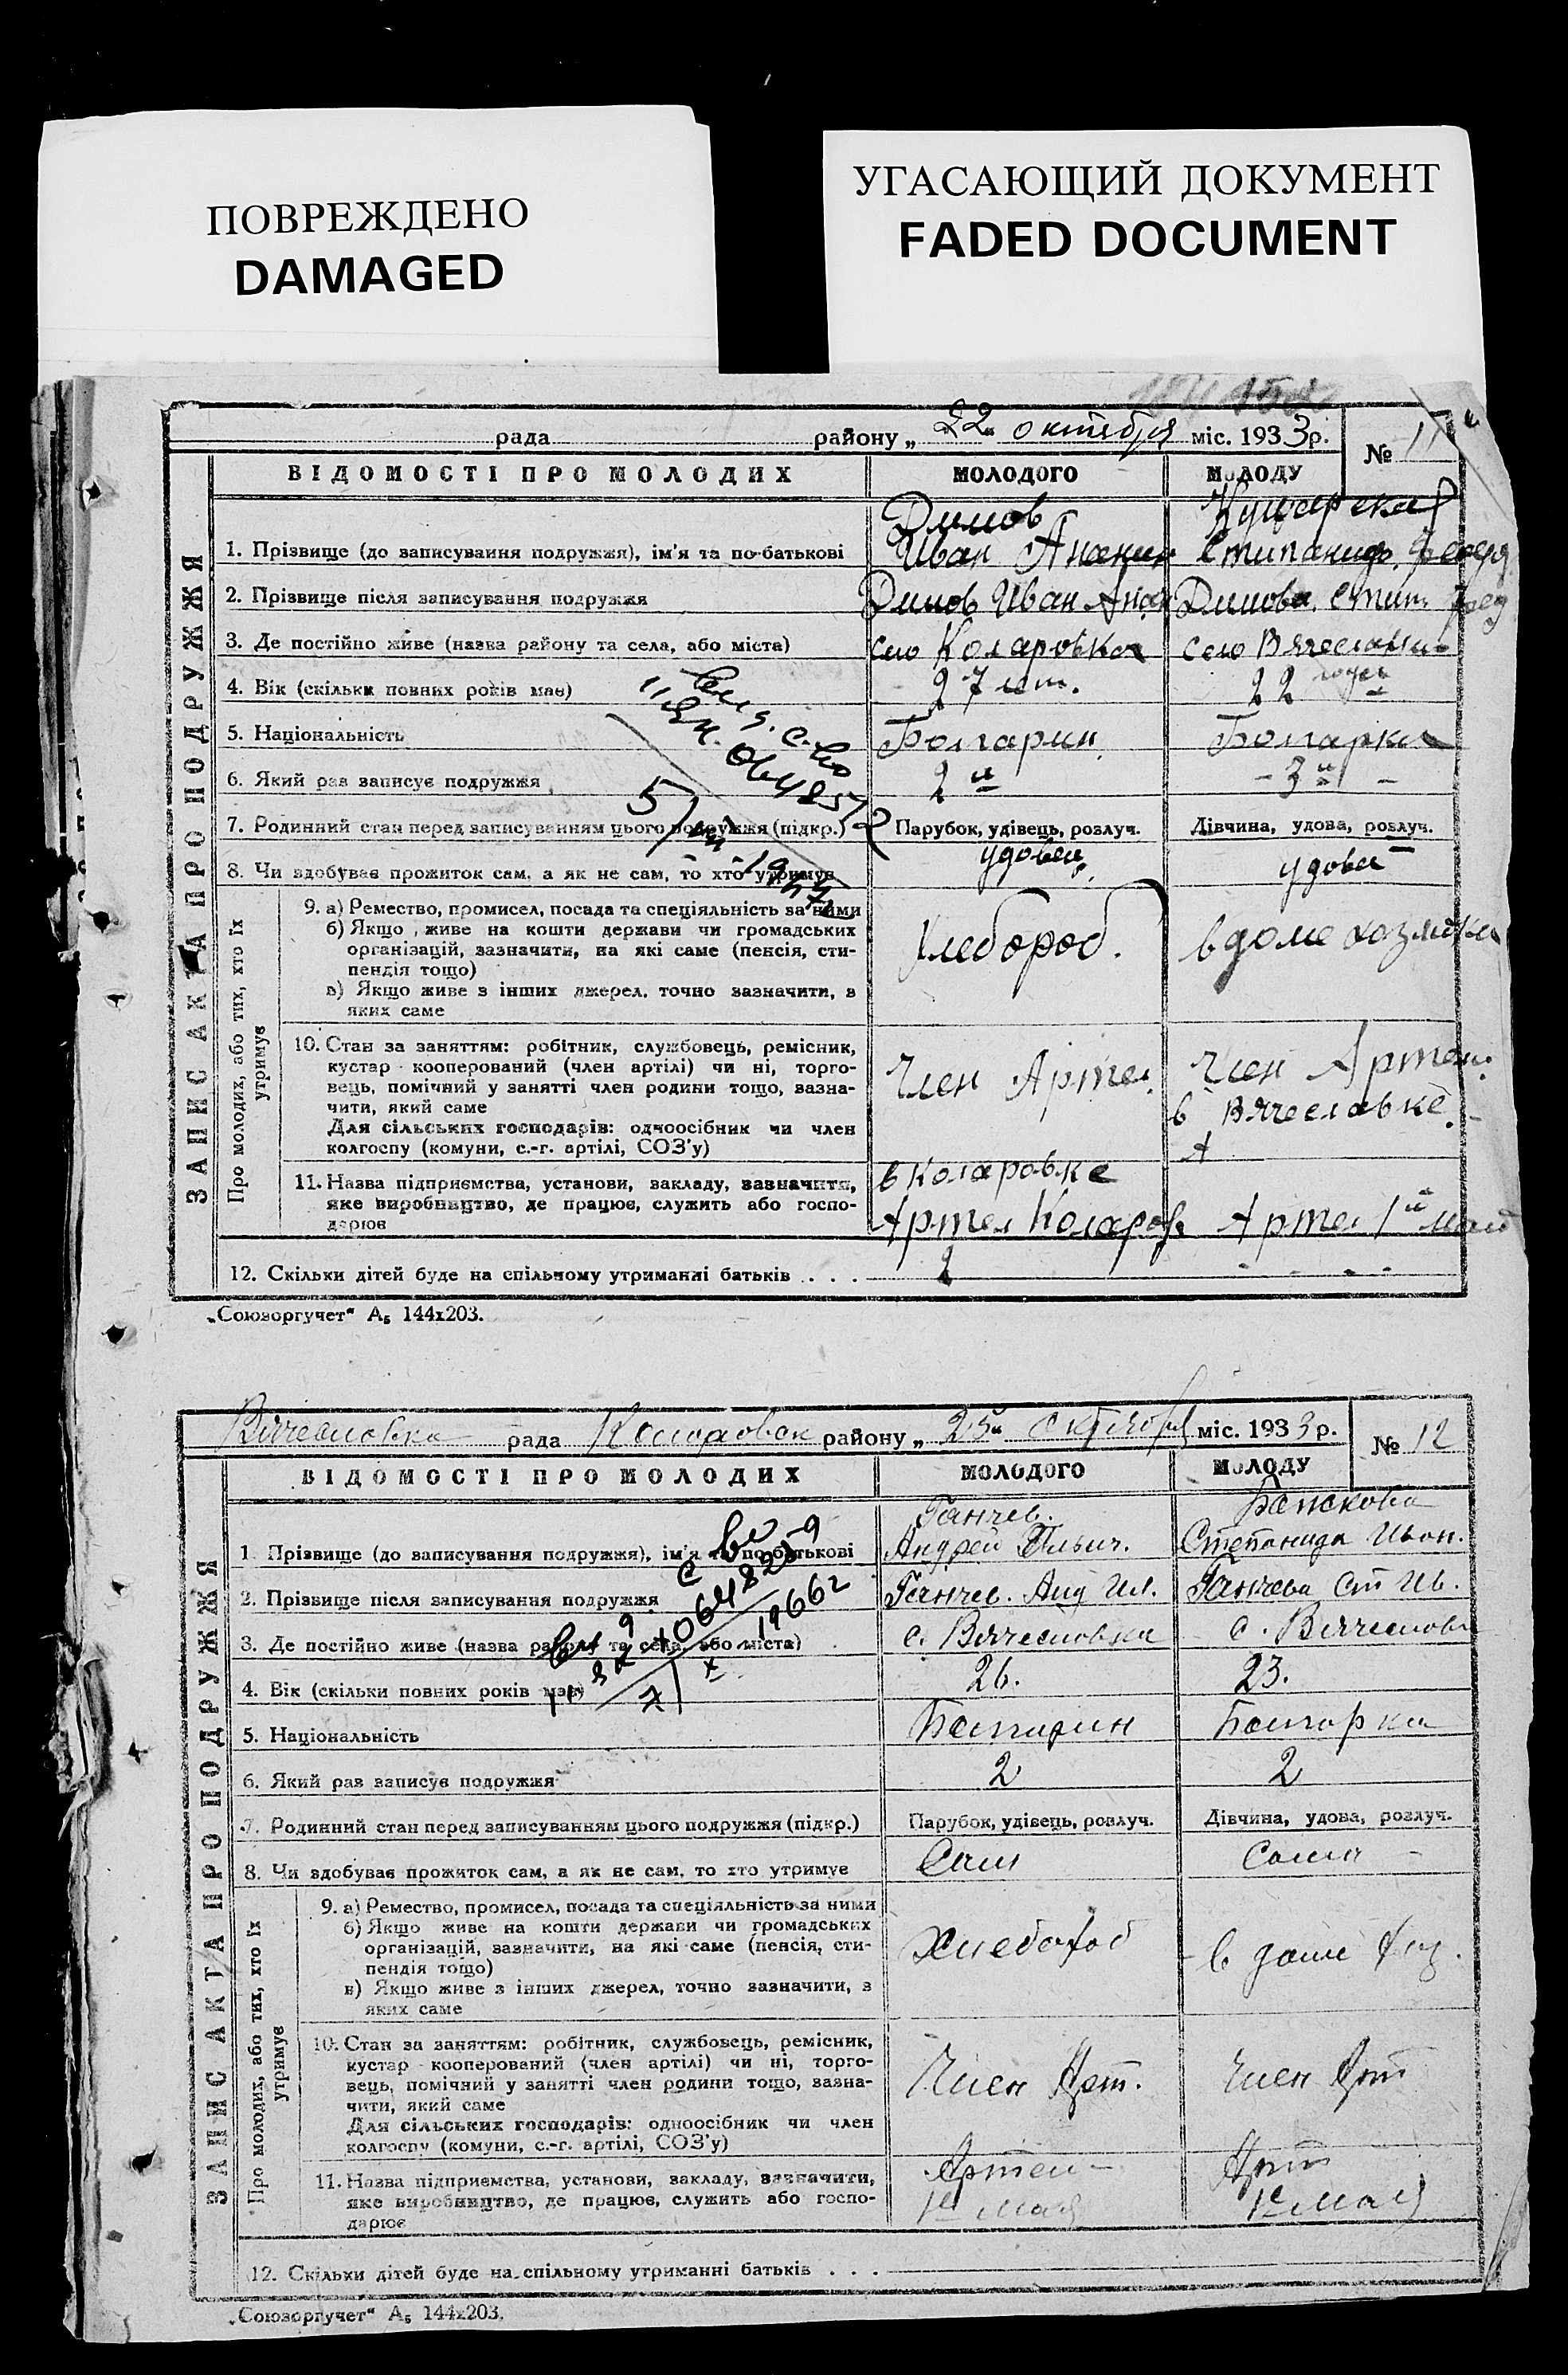 ПОВРЕЖДЕНО
DAMAGED
УГАСАЮЩИЙ ДОКУМЕНТ
FADED DOCUMENT
рада району „ 22 " октября міс. 1933 р. № 11
ВІДОМОСТІ ПРО МОЛОДИХ МОЛОДОГО МОЛОДУ
ЗАПИС АКТА ПРО ПОДРУЖЖЯ
Димов
1. Прізвище (до записування подружжя), ім'я та по-батькові Иван Стипанида
2. Прізвище після записування подружжя Димов Иван Анан Димова Стип. Фед
3. Де постійно живе (назва району та села, або міста) село Коларовка село
4. Вік (скільки повних років має) 27 лет. 22 годъ
5. Національність Болгарин Болгарка
6. Який раз записує подружжя 2й - 3й -
7. Родинний стан перед записуванням цього подружжя (підкр.) Парубок, удівець, розлуч. Дівчина, удова, розлуч.
удовец удова
8. Чи здобуває прожиток сам, а як не сам, то хто утримує
Про молодих, або тих, хто їх утримує
9. а) Ремество, промисел, посада та спеціяльність за ними
б) Якщо живе на кошти держави чи громадських
організацій, зазначити, на які саме (пенсія, сти-
пендія тощо)
в) Якщо живе з інших джерел, точно зазначити, з
яких саме
Хлебороб. в доме хозяйка
10. Стан за заняттям: робітник, службовець, ремісник,
кустар кооперований (член артілі) чи ні, торго-
вець, помічний у занятті член родини тощо, зазна-
чити, який саме
Для сільських господарів: одноосібник чи член
колгоспу (комуни, с.-г. артілі, СОЗ'у)
Член Артел. Член Артел.
в Вячеславке.
11. Назва підприємства, установи, закладу, зазначити,
яке виробництво, де працює, служить або госпо-
дарює
в Коларовке
Артел Коларов Артел 1й мая
12. Скільки дітей буде на спільному утриманні батьків . . . 2
„Союзоргучет" А₅ 144х203.
Вячеславка рада Коларовск району „ 25 " октября міс. 1933 р. № 12
ВІДОМОСТІ ПРО МОЛОДИХ МОЛОДОГО МОЛОДУ
ЗАПИС АКТА ПРО ПОДРУЖЖЯ
Ганчев.
1. Прізвище (до записування подружжя), ім'я та по-батькові Андрей Ильич. Степанида Ивон.
2. Прізвище після записування подружжя Ганчев. Анд Ил. Ганчева Ст Ив.
3. Де постійно живе (назва району та села, або міста) с. Вячеславка с. Вячеславк
4. Вік (скільки повних років має) 26. 23.
5. Національність Болгарин Болгарка
6. Який раз записує подружжя 2 2
7. Родинний стан перед записуванням цього подружжя (підкр.) Парубок, удівець, розлуч. Дівчина, удова, розлуч.
8. Чи здобуває прожиток сам, а як не сам, то хто утримує Сам Сама -
Про молодих, або тих, хто їх утримує
9. а) Ремество, промисел, посада та спеціяльність за ними
б) Якщо живе на кошти держави чи громадських
організацій, зазначити, на які саме (пенсія, сти-
пендія тощо)
в) Якщо живе з інших джерел, точно зазначити, з
яких саме
Хлебороб в доме хоз.
10. Стан за заняттям: робітник, службовець, ремісник,
кустар кооперований (член артілі) чи ні, торго-
вець, помічний у занятті член родини тощо, зазна-
чити, який саме
Для сільських господарів: одноосібник чи член
колгоспу (комуни, с.-г. артілі, СОЗ'у)
Член Арт. Член Арт
11. Назва підприємства, установи, закладу, зазначити,
яке виробництво, де працює, служить або госпо-
дарює
Артел Арт
1е мая 1е мая
12. Скільки дітей буде на спільному утриманні батьків . . .
„Союзоргучет" А₅ 144х203.